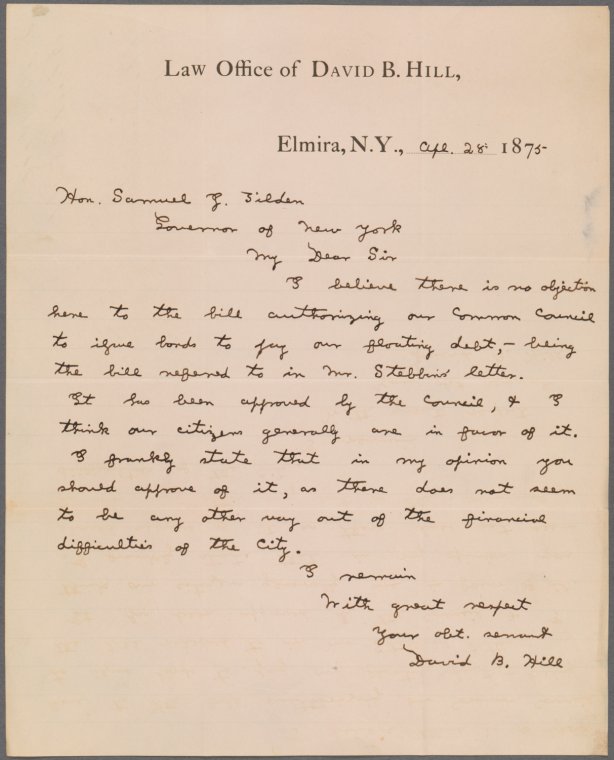 Law Office of DAVID B. HILL,
Elmira, N.Y., Apl. 28 1875
Hon. Samuel J. Tilden
Governor of New York
My Dear Sir
I believe there is no objection
here to the bill authorizing our Common Council
to issue bonds to pay our floating debt, – being
the bill referred to in Mr. Stebbins' letter.
It has been approved by the Council, & I
think our citizens generally are in favor of it.
I frankly state that in my opinion you
should approve of it, as there does not seem
to be any other way out of the financial
difficulties of the City.
I remain
With great respect
Your obt. servant
David B. Hill